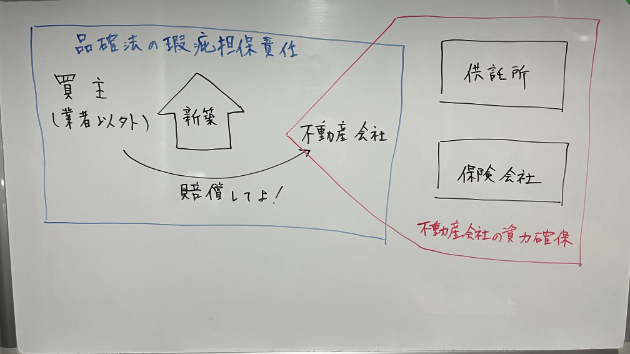 品確法の瑕疵担保責任
買主
(業者以外)
新築
不動産会社
賠償してよ!
供託所
保険会社
不動産会社の資力確保